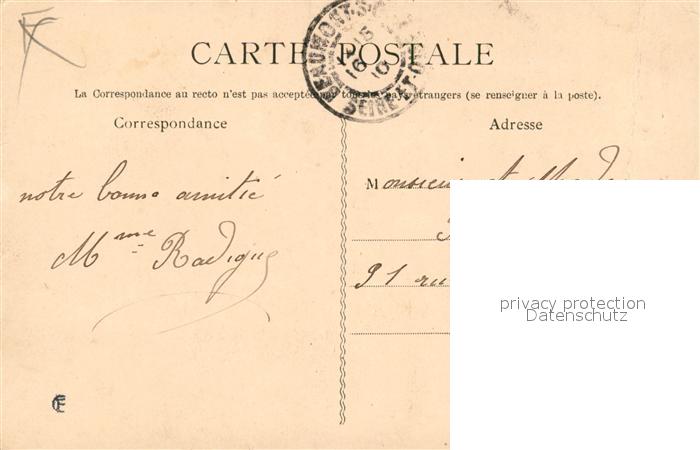 CARTE POSTALE
La Correspondance au recto n'est pas acceptée par tous les pays étrangers (se renseigner à la poste).
Correspondance
Adresse
notre bonne amitié
Mme Radigue
Monsieur et Mad
91 ru
BEAUMONT-S
SEINE-ET-O
15
16
10
privacy protection
Datenschutz